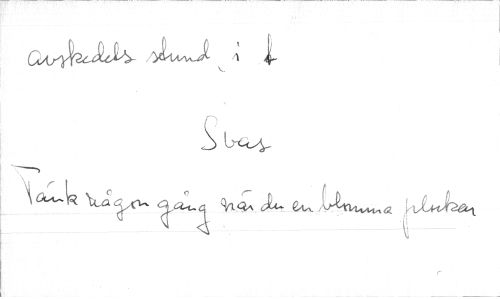 avskedets stund, i
Svas
Tänk någon gång när du en blomma plockar